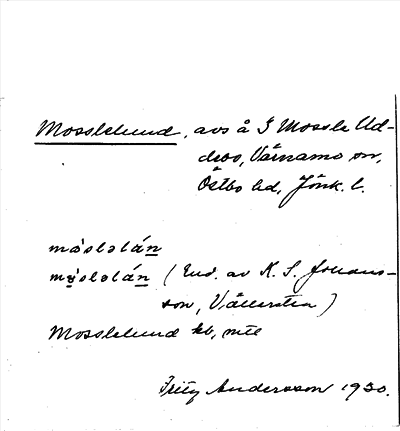 Mosslelund, avs å S Mossle Ud-
devo, Värnamo sn,
Östbo hd, Jönk. l.
måslǝlán
mɵslǝlán (Enl. av K. S. Johans-
son, Vällersten)
Mosslelund kb, mtl
Fritz Andersson 1930.